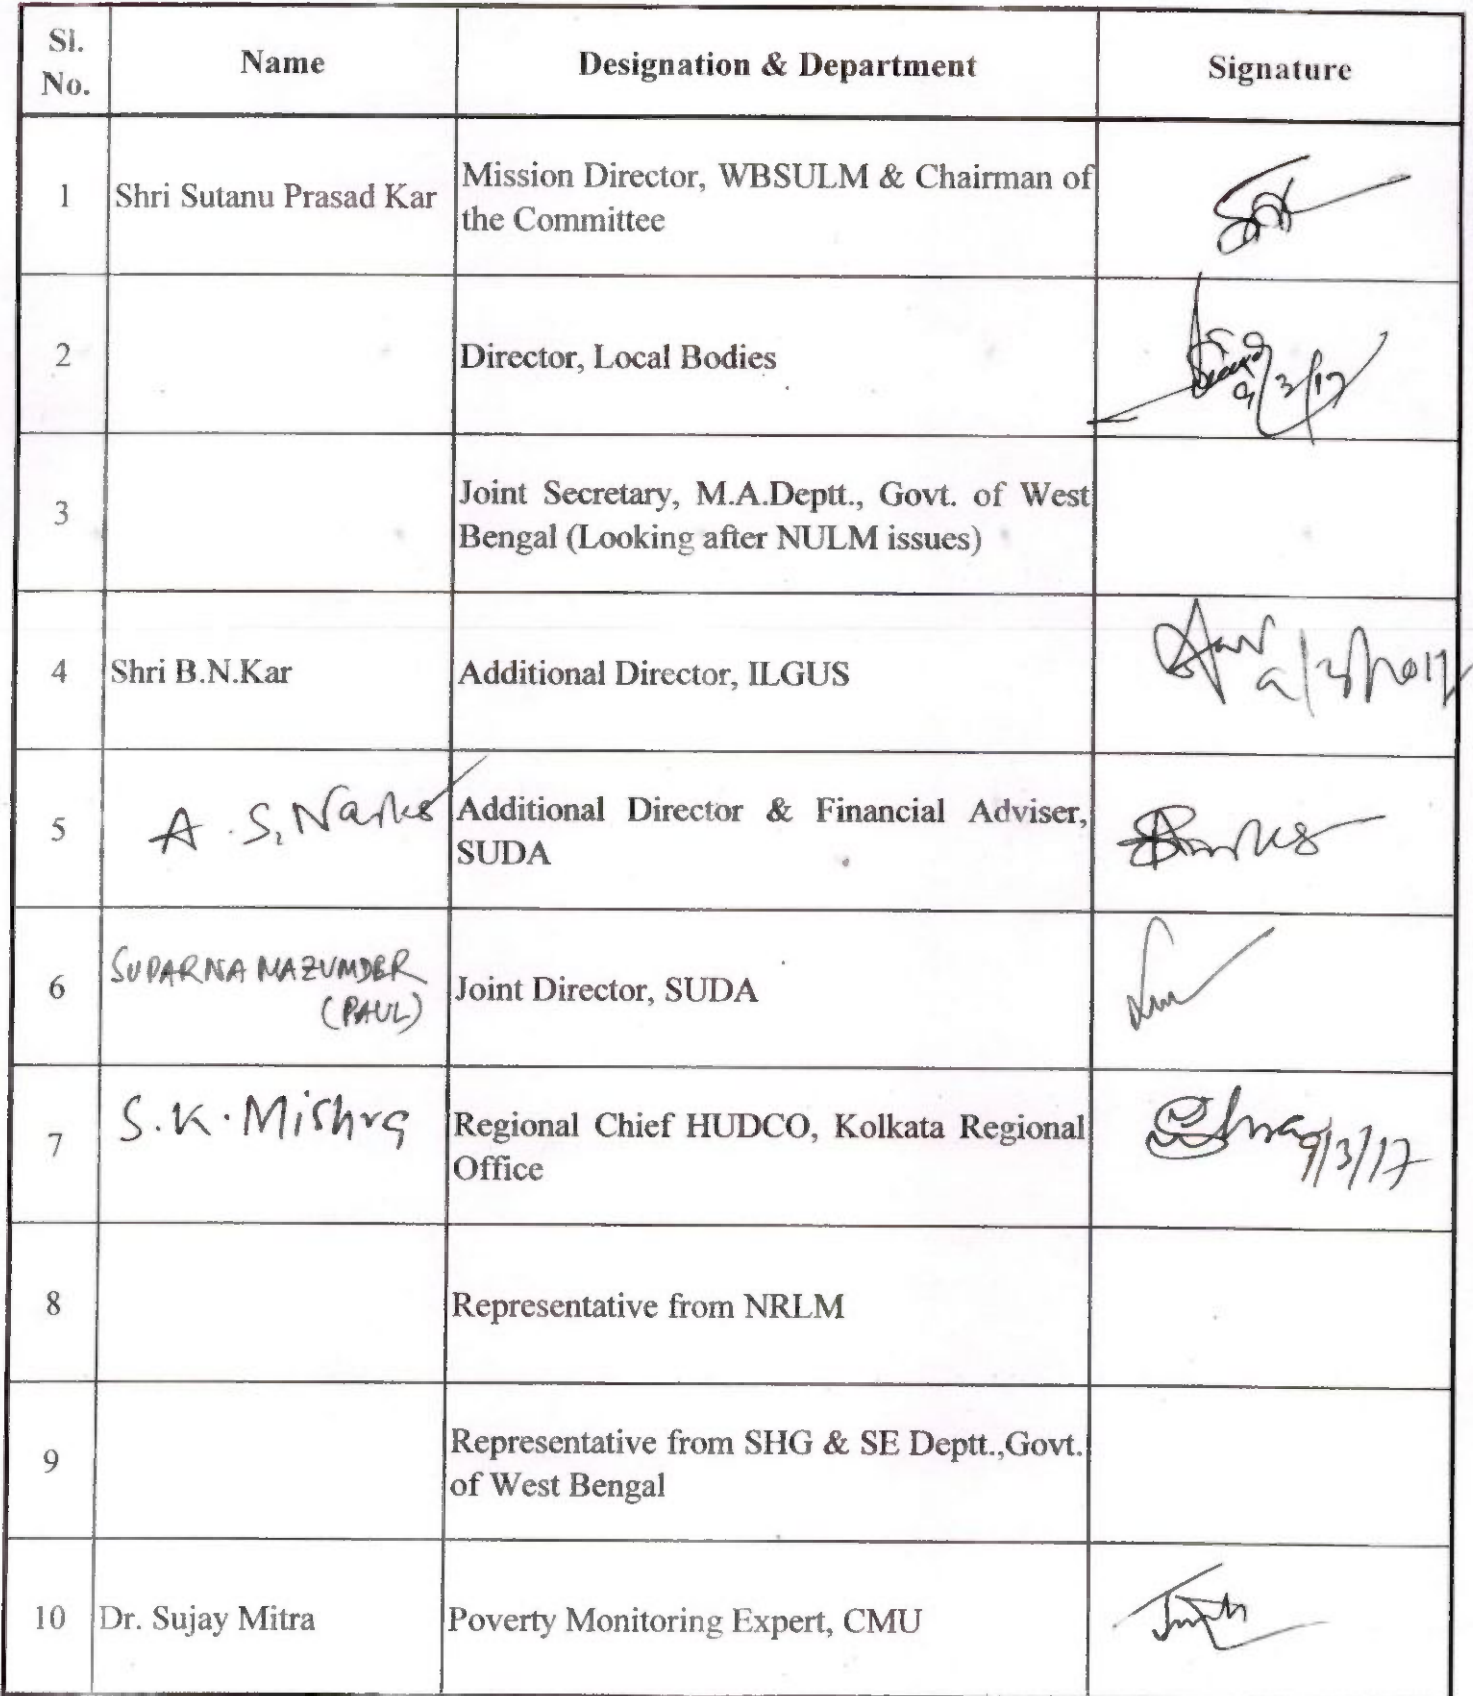 Sl. No.
Name
Designation & Department
Signature
1
Shri Sutanu Prasad Kar
Mission Director, WBSULM & Chairman of
the Committee
2
Director, Local Bodies
9/3/17
3
Joint Secretary, M.A.Deptt., Govt. of West
Bengal (Looking after NULM issues)
4
Shri B.N.Kar
Additional Director, ILGUS
9/3/2017
5
A.S.
Additional Director & Financial Adviser,
SUDA
6
SUPARNA MAZUMDER
(PAUL)
Joint Director, SUDA
7
S.K.Mishra
Regional Chief HUDCO, Kolkata Regional
Office
9/3/17
8
Representative from NRLM
9
Representative from SHG & SE Deptt.,Govt.
of West Bengal
10
Dr. Sujay Mitra
Poverty Monitoring Expert, CMU